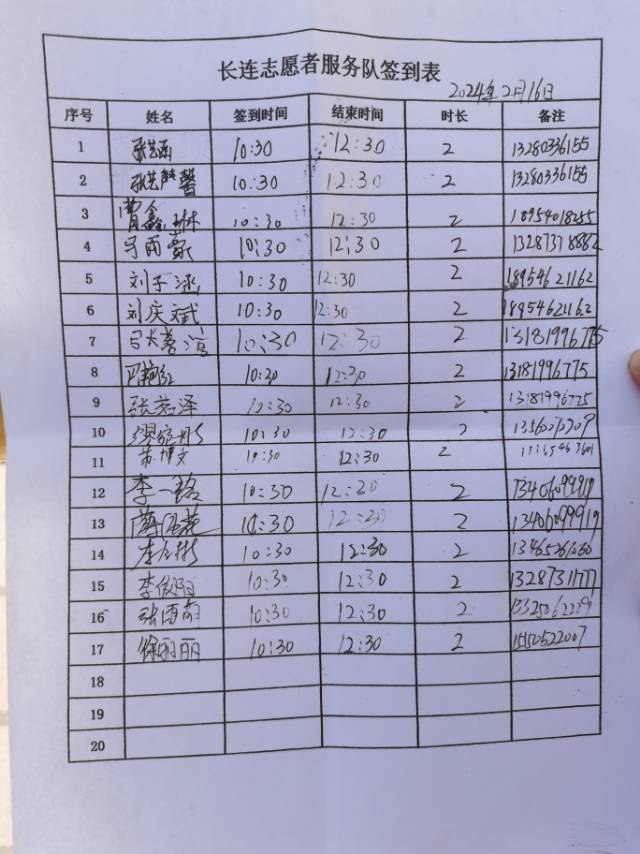 长连志愿者服务队签到表
2024年2月16日
序号 姓名 签到时间 结束时间 时长 备注
1 张艺函 10:30 12:30 2 13280336155
2 张艺严馨 10:30 12:30 2 13280336155
3 曹鑫琳 10:30 12:30 2
4 10:30 12:30 2
5 刘子涵 10:30 12:30 2 18954621162
6 刘庆斌 10:30 12:30 2 18954621162
7 10:30 12:30 2 13181996775
8 10:30 12:30 2 13181996775
9 张若泽 10:30 12:30 2 13181996775
10 10:30 12:30 2
11 苏博文 10:30 12:30 2
12 李一 10:30 12:30 2 13406099919
13 10:30 12:30 2 13406099919
14 10:30 12:30 2
15 李俊阳 10:30 12:30 2 13287311777
16 张雨萌 10:30 12:30 2
17 徐丽丽 10:30 12:30 2 15550522007
18
19
20